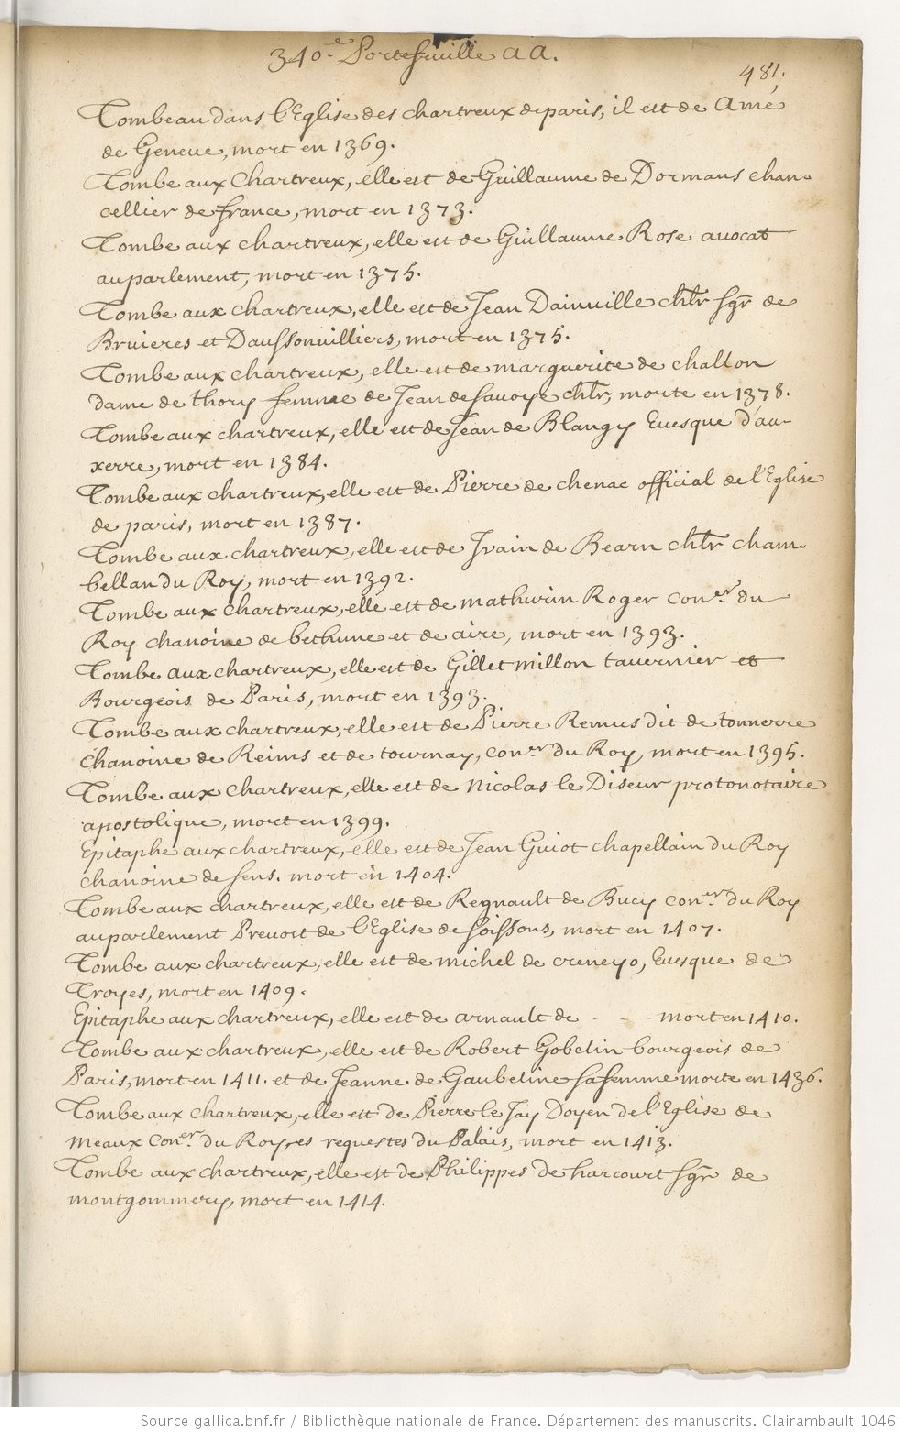 340.e Portefeuille aa.
481.
Tombeau dans l'Eglise des chartreux de paris, il est de Amé
de Geneve, mort en 1369.
Tombe aux Chartreux, elle est de Guillaume de Dormans chan-
cellier de france, mort en 1373.
Tombe aux chartreux, elle est de Guillaume Rose avocat
au parlement, mort en 1375.
Tombe aux chartreux, elle est de Jean Dainville chlr sgr de
Bruieres et Daussonvilliers, mort en 1375.
Tombe aux chartreux, elle est de marguerite de challon
dame de thory femme de Jean de savoye chlr, morte en 1378.
Tombe aux chartreux, elle est de Jean de Blangy Evesque d'au-
xerre, mort en 1384.
Tombe aux chartreux, elle est de Pierre de chenac official de l'Eglise
de paris, mort en 1387.
Tombe aux chartreux, elle est de Jvain de Bearn chlr cham-
bellan du Roy, mort en 1392.
Tombe aux chartreux, elle est de mathurin Roger con.er du
Roy chanoine de bethune et de aire, mort en 1393.
Tombe aux chartreux, elle est de Gillet millon tavernier et
Bourgeois de Paris, mort en 1393.
Tombe aux chartreux, elle est de Pierre Remus dit de tonnerre
chanoine de Reims et de tournay, con.er du Roy, mort en 1395.
Tombe aux chartreux, elle est de Nicolas le Diseur protonotaire
apostolique, mort en 1399.
Epitaphe aux chartreux, elle est de Jean Guiot chapellain du Roy
chanoine de sens. mort en 1404.
Tombe aux chartreux, elle est de Regnault de Bucy con.er du Roy
au parlement Prevost de l'Eglise de soissons, mort en 1407.
Tombe aux chartreux, elle est de michel de creneyo, Evesque de
Troyes, mort en 1409.
Epitaphe aux chartreux, elle est de arnault de - - mort en 1410.
Tombe aux chartreux, elle est de Robert Gobelin bourgeois de
Paris, mort en 1411. et de Jeanne de Gaubeline sa femme morte en 1436.
Tombe aux chartreux, elle est de Pierre le Jay Doyen de l'Eglise de
meaux con.er du Roy es requestes du Palais, mort en 1413.
Tombe aux chartreux, elle est de Philippes de harcourt sgr de
montgommery, mort en 1414.
Source gallica.bnf.fr / Bibliothèque nationale de France. Département des manuscrits. Clairambault 1046